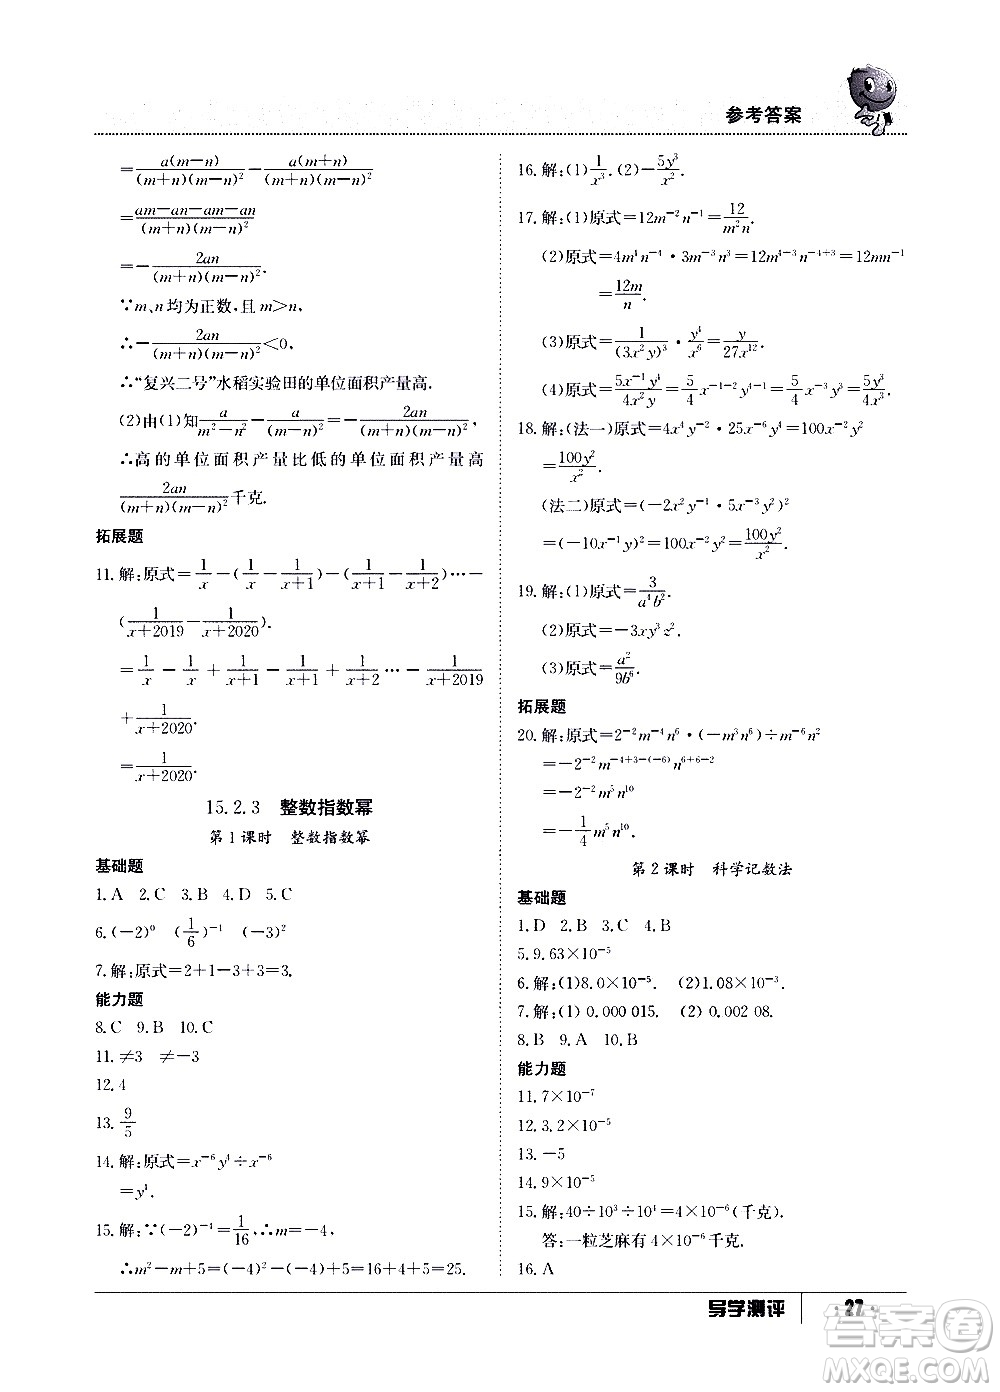 参考答案
=a(m-n)/(m+n)(m-n)²-a(m+n)/(m+n)(m-n)²
=am-an-am-an/(m+n)(m-n)²
=-2an/(m+n)(m-n)².
∵m、n均为正数,且m>n,
∴-2an/(m+n)(m-n)²<0,
∴“复兴二号”水稻实验田的单位面积产量高.
(2)由(1)知a/(m²-n²)-a/(m-n)²=-2an/(m+n)(m-n)²,
∴高的单位面积产量比低的单位面积产量高
2an/(m+n)(m-n)²千克.
拓展题
11.解:原式=1/x-(1/x-1/(x+1))-(1/(x+1)-1/(x+2))…-
(1/(x+2019)-1/(x+2020))
=1/x-1/x+1/(x+1)-1/(x+1)+1/(x+2)…-1/(x+2019)
+1/(x+2020).
=1/(x+2020).
15.2.3 整数指数幂
第1课时 整数指数幂
基础题
1.A 2.C 3.B 4.D 5.C
6.(-2)⁰ (1/6)⁻¹ (-3)²
7.解:原式=2+1-3+3=3.
能力题
8.C 9.B 10.C
11.≠3 ≠-3
12.4
13.9/5
14.解:原式=x⁻⁶y⁴÷x⁻⁶
=y⁴.
15.解:∵(-2)⁻⁴=1/16,∴m=-4,
∴m²-m+5=(-4)²-(-4)+5=16+4+5=25.
16.解:(1)1/x³.(2)-5y³/x².
17.解:(1)原式=12m⁻²n⁻¹=12/m²n.
(2)原式=4m⁴n⁻⁴·3m⁻³n³=12m⁴⁻³n⁻⁴⁺³=12mn⁻¹
=12m/n.
(3)原式=1/(3x²y)³·y⁴/x⁶=y/27x¹².
(4)原式=5x⁻¹y⁴/4x²y=5/4x⁻¹⁻²y⁴⁻¹=5/4x⁻³y³=5y³/4x³.
18.解:(法一)原式=4x⁴y⁻²·25x⁻⁶y⁴=100x⁻²y²
=100y²/x².
(法二)原式=(-2x²y⁻¹·5x⁻³y²)²
=(-10x⁻¹y)²=100x⁻²y²=100y²/x².
19.解:(1)原式=3/a⁴b².
(2)原式=-3xy³z².
(3)原式=a²/9b⁶.
拓展题
20.解:原式=2⁻²m⁻⁴n⁶·(-m³n⁶)÷m⁻⁶n²
=-2⁻²m⁻⁴⁺³⁻⁽⁻⁶⁾n⁶⁺⁶⁻²
=-2⁻²m⁵n¹⁰
=-1/4m⁵n¹⁰.
第2课时 科学记数法
基础题
1.D 2.B 3.C 4.C
5.9.63×10⁻⁵
6.解:(1)8.0×10⁻⁵. (2)1.08×10⁻³.
7.解:(1)0.000 015. (2)0.002 08.
8.B 9.A 10.B
能力题
11.7×10⁻⁷
12.3.2×10⁻⁵
13.-5
14.9×10⁻⁵
15.解:40÷10³÷10⁴=4×10⁻⁶(千克).
答:一粒芝麻有4×10⁻⁶千克.
16.A
导学测评 ·27·
答案圈
MXQE.COM